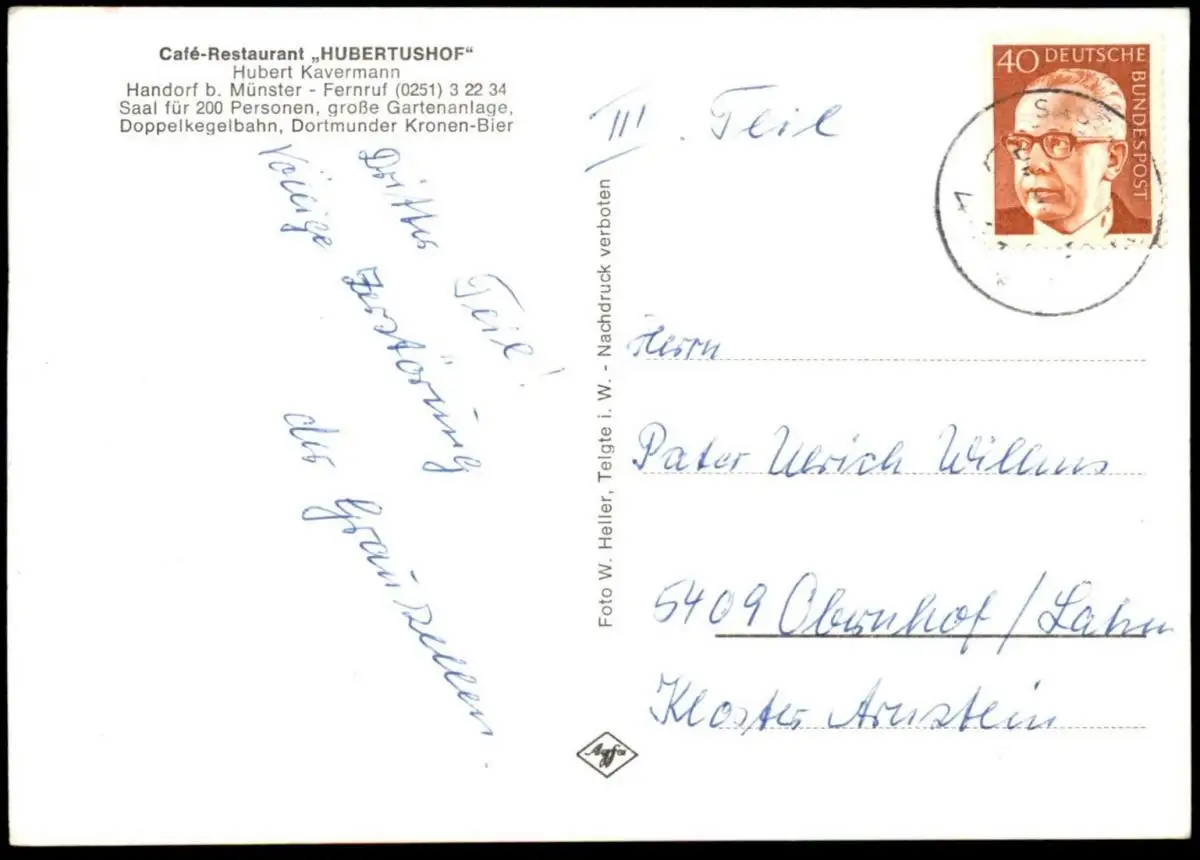 Café-Restaurant „HUBERTUSHOF"
Hubert Kavermann
Handorf b. Münster - Fernruf (0251) 3 22 34
Saal für 200 Personen, große Gartenanlage,
Doppelkegelbahn, Dortmunder Kronen-Bier
III. Teil
Dritter Teil!
Völlige Zerstörung
der Grauzellen.
Foto W. Heller, Telgte i. W. - Nachdruck verboten
40 DEUTSCHE
BUNDESPOST
Herrn
Pater Ulrich Willms
5409 Obernhof/Lahn
Kloster Arnstein
Agfa